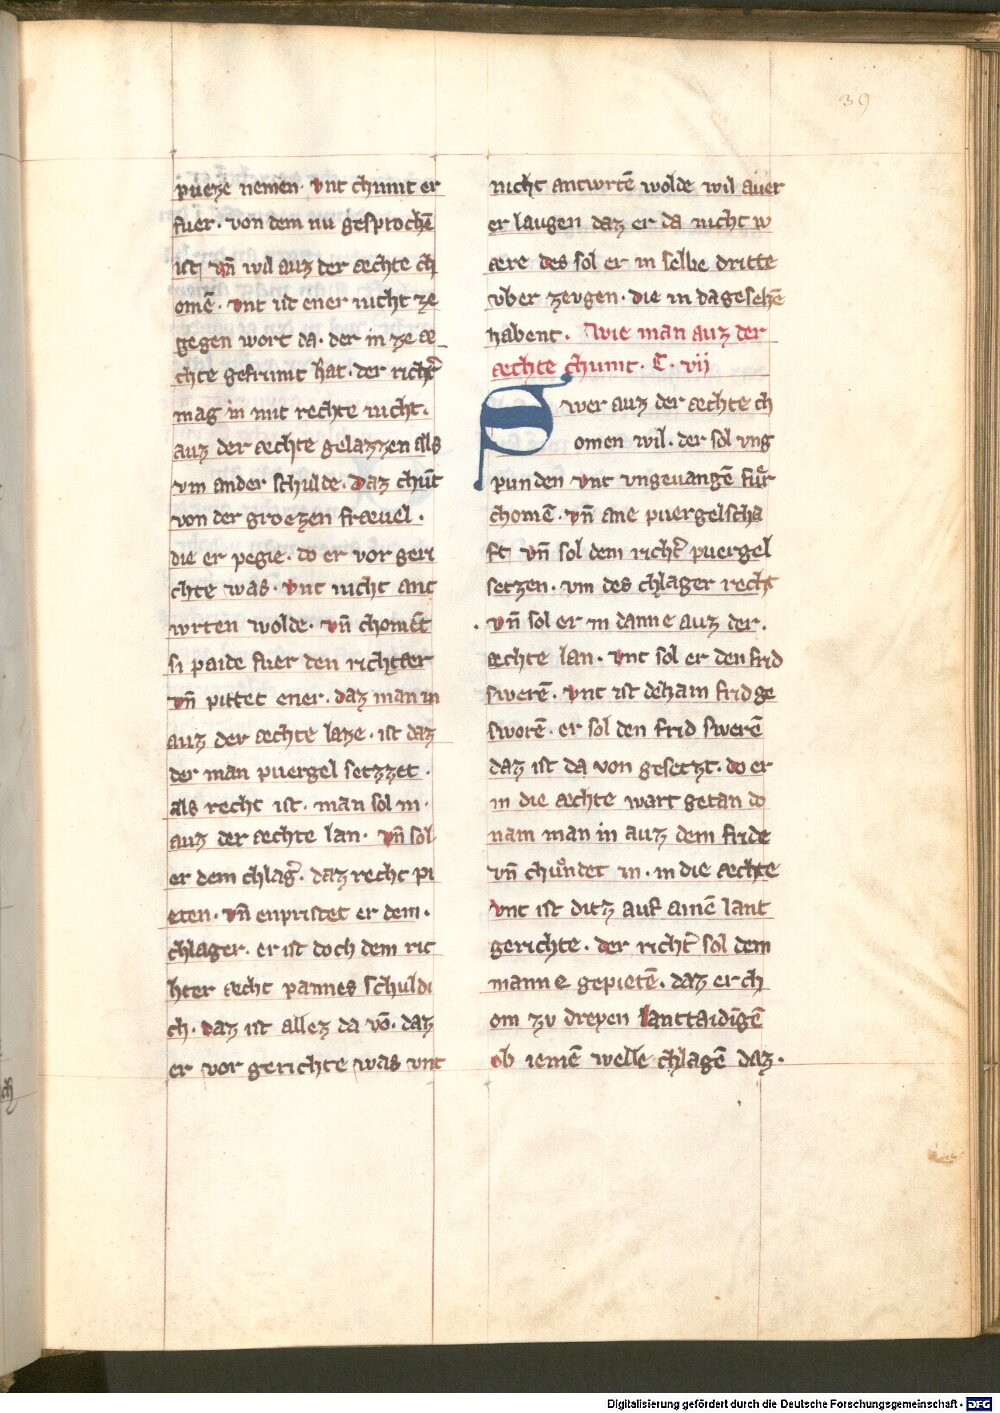 39
pueze nemen. vnt chumt er
fuer. von dem nu gesprochē
ist vn̄ wil auz der æchte ch
omē. vnt ist ener nicht ze
gegen wort da. der in ze æ
chte gefrumt hat. der richt̄
mag in mit rechte nicht.
auz der æchte gelazzen als
vm ander schulde. Daz chūt
von der groezen fræuel.
die er pegie. do er vor geri
chte was. vnt nicht ant
wrten wolde. vn̄ chomēt
si paide fuer den richtær
vn̄ pittet ener. daz man in
auz der æchte laze. ist daz
der man puergel setzzet.
als recht ist. man sol in.
auz der æchte lan. vn̄ sol
er dem chlaḡ. daz recht pi
eten. vn̄ enpristet er dem.
chlager. er ist doch dem ric
hter æcht pannes schuldi
ch. daz ist allez da vō. daz
er vor gerichte was vnt
nicht antwrtē wolde wil auer
er laugen daz er da nicht w
ære des sol er in selbe dritte
vber zevgen. die in da gesehē
habent. Wie man auz der
æchte chumt. C. vij
Swer auz der æchte ch
omen wil. der sol vng
punden vnt vngeuangē fuͤr
chomē. vn̄ ane puergelscha
ft vn̄ sol dem richt̄ puergel
setzen. vm des chlager recht
. vn̄ sol er in danne auz der.
æchte lan. vnt sol er den frid
swerē. vnt ist dehain frid ge
sworē. er sol den frid swerē
daz ist da von gesetzt. do er
in die æchte wart getan do
nam man in auz dem fride
vn̄ chuͦndet in. in die æchte
vnt ist ditz auf ainē lant
gerichte. der richt̄ sol dem
manne gepietē. daz er ch
om zv dreyen lanttaidīgē
ob iemē welle chlagē daz.
Digitalisierung gefördert durch die Deutsche Forschungsgemeinschaft - DFG